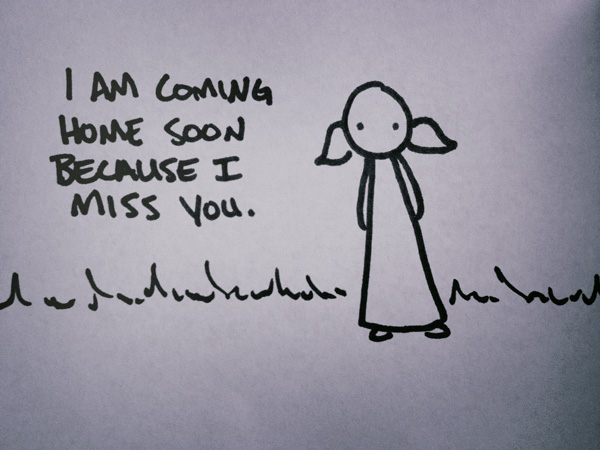 I AM COMING
HOME SOON
BECAUSE I
MISS YOU.